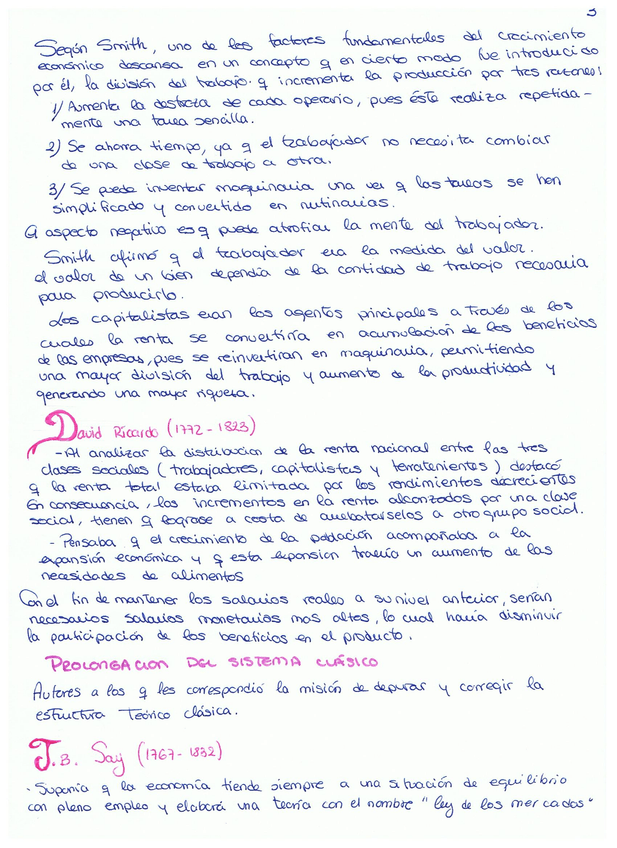 3
Según Smith, uno de los factores fundamentales del crecimiento
económico descansa en un concepto q en cierto modo fue introducido
por él, la división del trabajo. q incrementa la producción por tres razones:
1/ Aumenta la destreza de cada operario, pues éste realiza repetida-
mente una tarea sencilla.
2) Se ahorra tiempo, ya q el trabajador no necesita cambiar
de una clase de trabajo a otra.
3/ Se puede inventar maquinaria una vez q las tareas se han
simplificado y convertido en rutinarias.
El aspecto negativo es q puede atrofiar la mente del trabajador.
Smith afirmó q el trabajador era la medida del valor.
el valor de un bien dependía de la cantidad de trabajo necesaria
para producirlo.
Los capitalistas eran los agentes principales a través de los
cuales la renta se convertiría en acumulación de los beneficios
de las empresas, pues se reinvertiran en maquinaria, permitiendo
una mayor división del trabajo y aumento de la productividad y
generando una mayor riqueza.
David Ricardo (1772-1823)
- Al analizar la distribucion de la renta nacional entre las tres
clases sociales (trabajadores, capitalistas y terratenientes) destacó
q la renta total estaba limitada por los rendimientos decrecientes
En consecuencia, los incrementos en la renta alcanzados por una clase
social, tienen q lograse a costa de arrebatarselos a otro grupo social.
- Pensaba q el crecimiento de la población acompañaba a la
expansión económica y q esta expansion traería un aumento de las
necesidades de alimentos
Con el fin de mantener los salarios reales a su nivel anterior, serían
necesarios salarios monetarios mas altos, lo cual haría disminuir
la participación de los beneficios en el producto.
PROLONGACION DEL SISTEMA CLÁSICO
Autores a los q les correspondió la misión de depurar y corregir la
estructura Teórico clásica.
J.B. Say (1767-1832)
· Suponía q la economía tiende siempre a una situación de equilibrio
con pleno empleo y elaboró una teoría con el nombre "ley de los mercados"